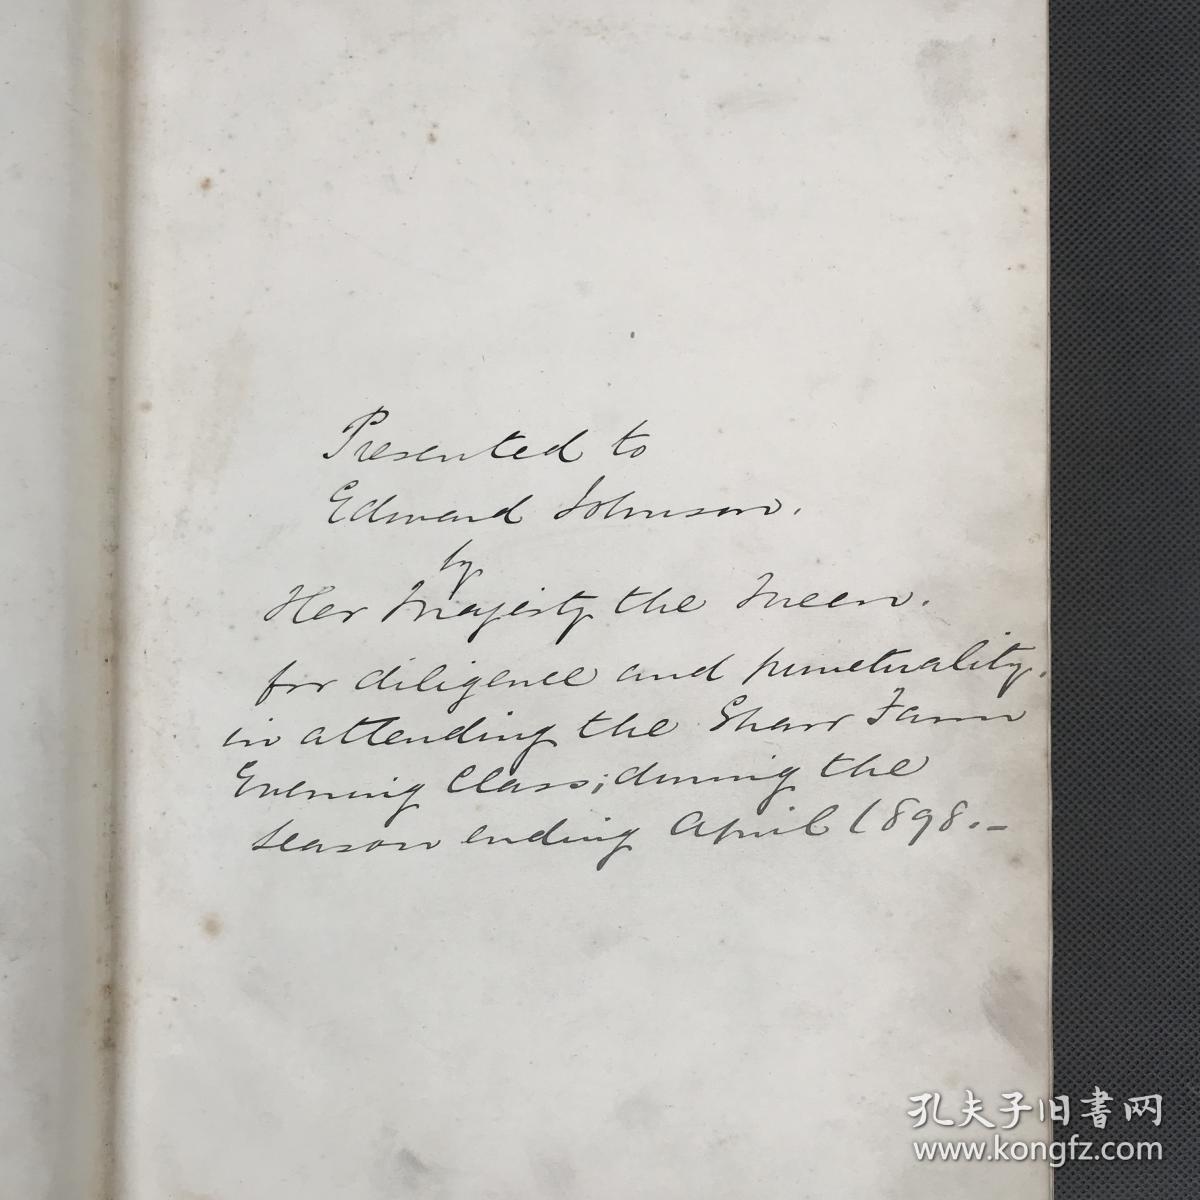 Presented to
Edward Johnson.
by
Her Majesty the Queen.
for diligence and punctuality.
in attending the Shaw Farm
Evening Class; during the
season ending April 1898.–
孔夫子旧書网
www.kongfz.com